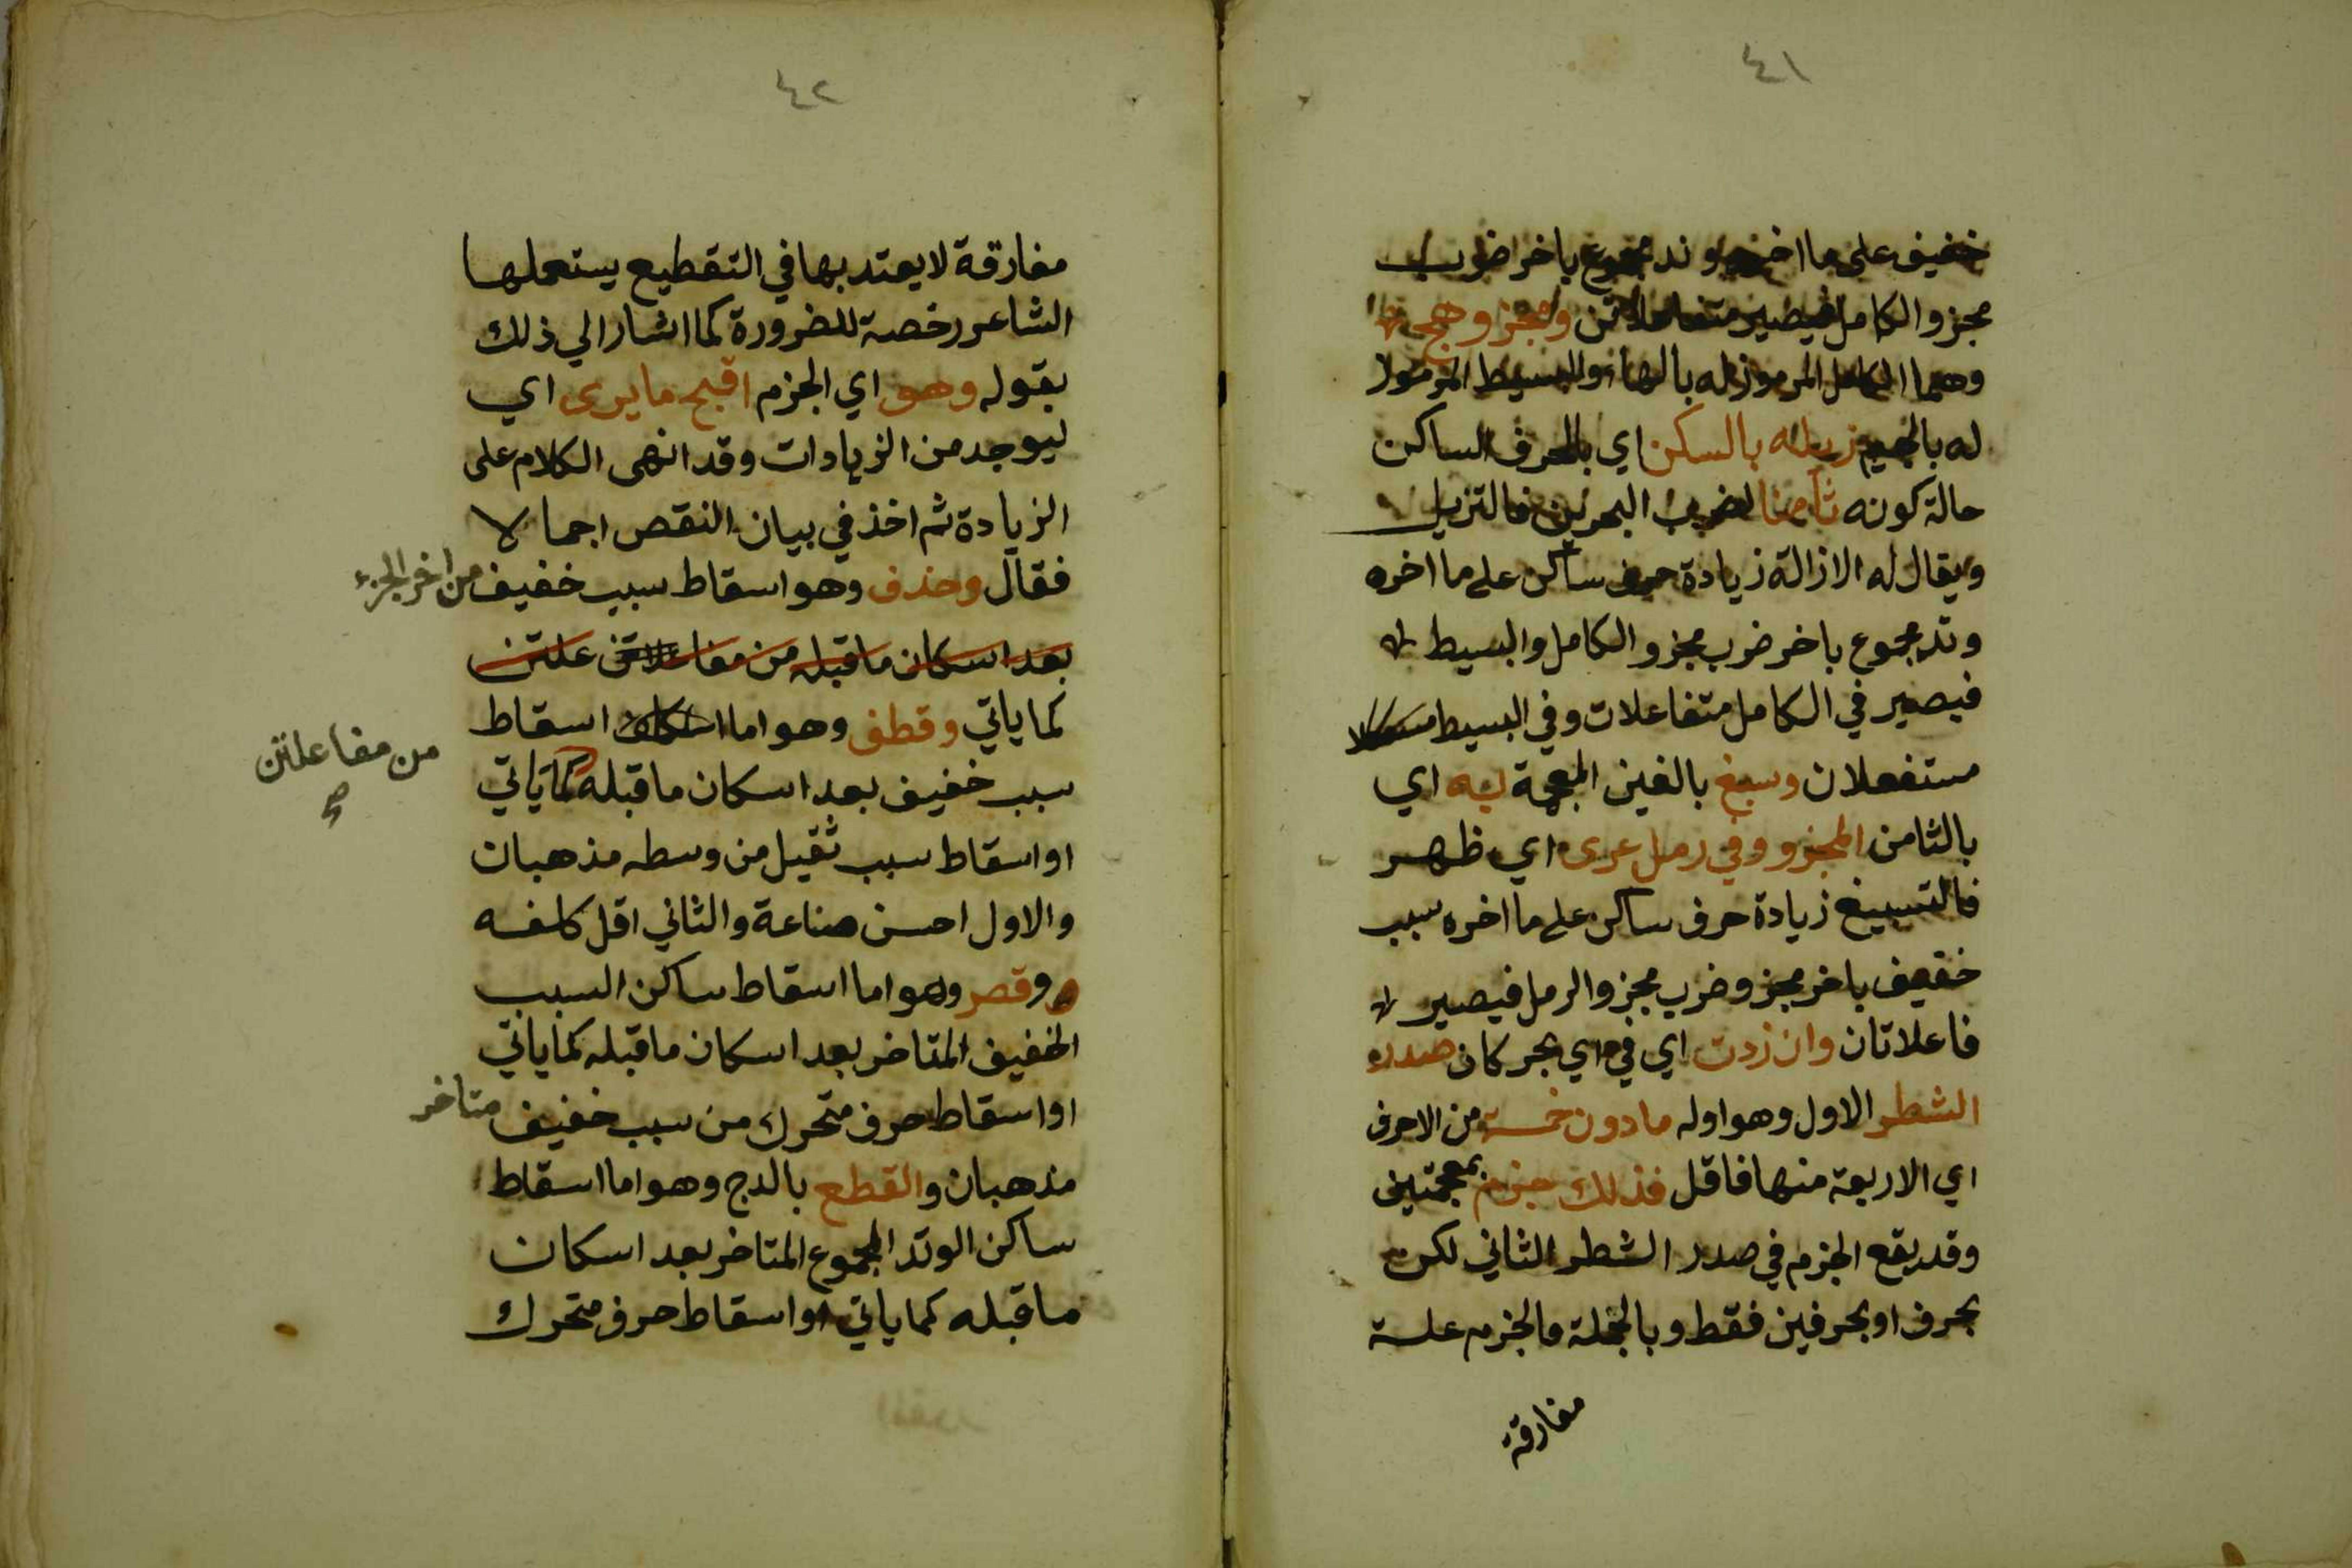 ٤١
خفيف على ما اخره وتد مجموع باخر ضرب
مجزو الكامل فيصير متفاعلاتن ومجزو هج
وهما الكامل المرموز له بالهاء والبسيط المرموز
له بالجيم زيله بالسكن اي بالحرف الساكن
حالة كونه ثامنا لضرب البحرين فالتزييل
ويقال له الازالة زيادة حرف ساكن على ما اخره
وتد مجموع باخر ضرب مجزو الكامل والبسيط
فيصير في الكامل متفاعلات وفي البسيط
مستفعلان وسبغ بالغين المعجمة به اي
بالثامن المجزو وفي رمل عرى اي ظهر
فالتسبيغ زيادة حرف ساكن على ما اخره سبب
خفيف باخر مجزو ضرب مجزو الرمل فيصير
فاعلاتان وان زدت اي في اي بحر كان صدر
الشطر الاول وهو اوله مادون خمسة من الاحرف
اي الاربعة منها فاقل فذلك خزم بمعجمتين
وقد يقع الخزم في صدر الشطر الثاني لكن
بحرف او بحرفين فقط وبالجملة فالخزم علة
مفارقة
٤٢
مفارقة لا يعتد بها في التقطيع يستعملها
الشاعر رخصة للضرورة كما اشار الي ذلك
بقوله وهو اي الخزم اقبح ما يرى اي
ليوجد من الزيادات وقد انهى الكلام على
الزيادة ثم اخذ في بيان النقص اجمالا
فقال وحذف وهو اسقاط سبب خفيف من اخر الجزء
بعد اسكان ما قبله من مفاعلتن علتن
كما ياتي وقطف وهو اما اسكان اسقاط
سبب خفيف بعد اسكان ما قبله كما ياتي
من مفاعلتن
صح
او اسقاط سبب ثقيل من وسطه مذهبان
والاول احسن صناعة والثاني اقل كلفه
وقصر وهو اما اسقاط ساكن السبب
الخفيف المتاخر بعد اسكان ما قبله كما ياتي
او اسقاط حرف متحرك من سبب خفيف متاخر
مذهبان والقطع بالدج وهو اما اسقاط
ساكن الوتد المجموع المتاخر بعد اسكان
ما قبله كما ياتي او اسقاط حرف متحرك